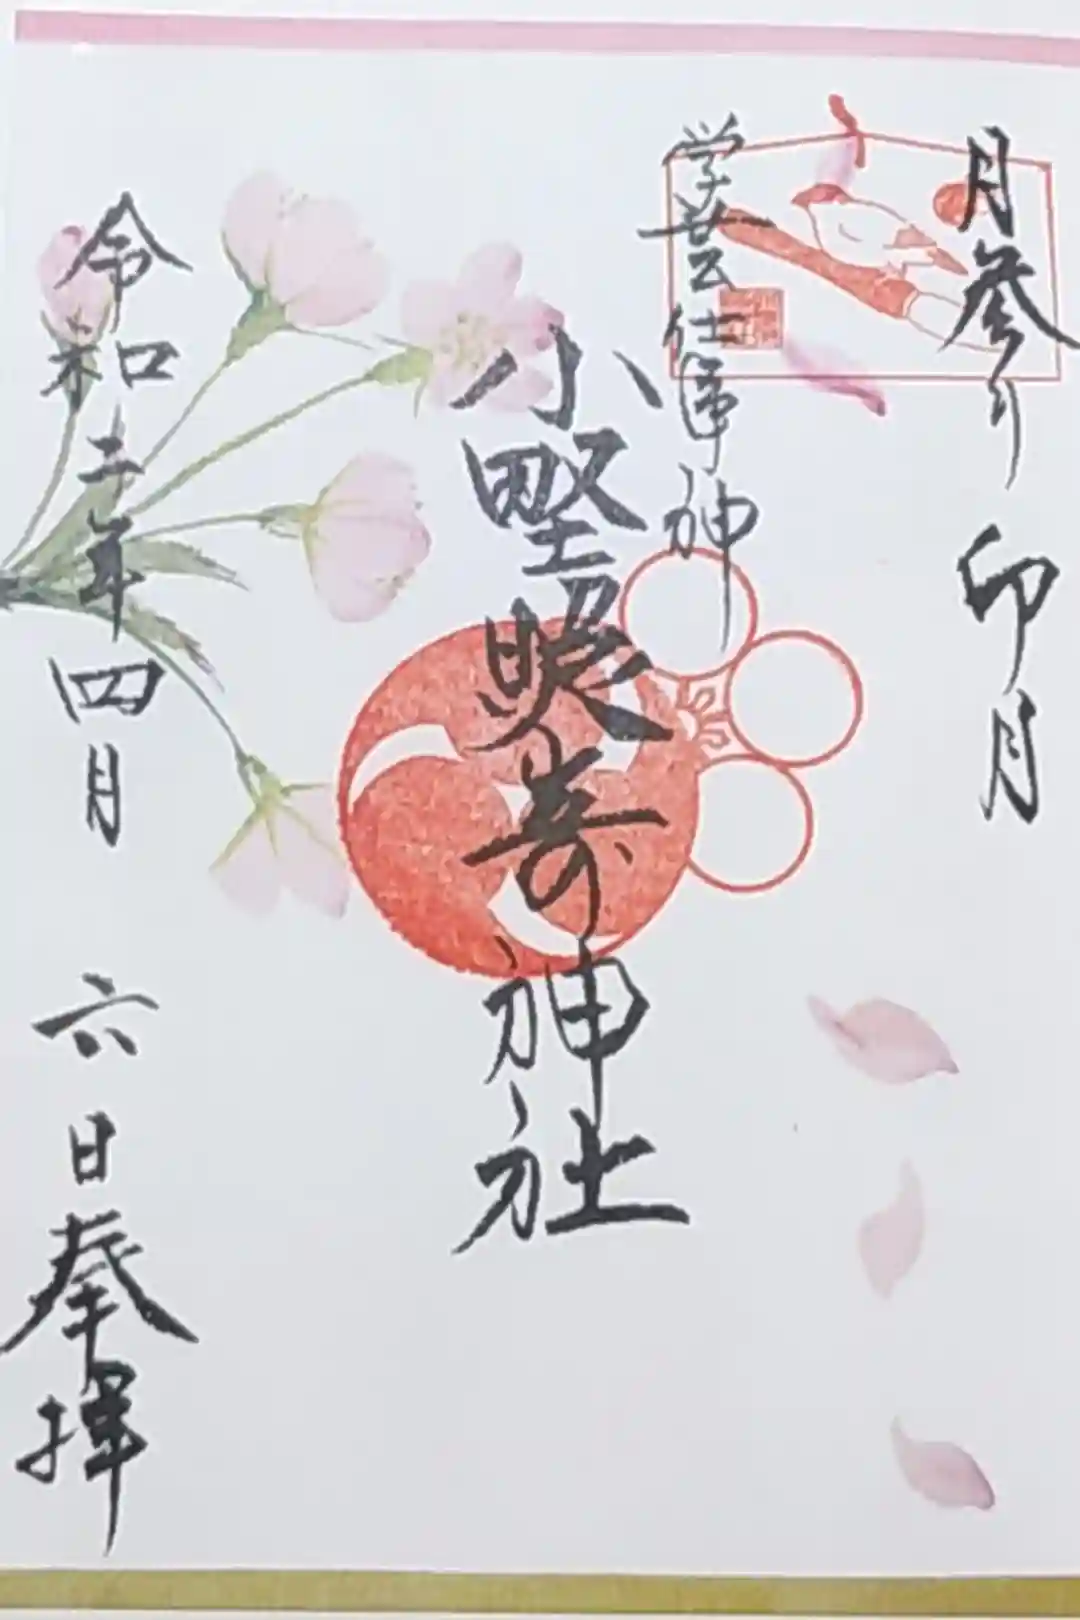 月参り 卯月
学芸仕事神
小野照崎神社
令和二年四月 六日奉拝